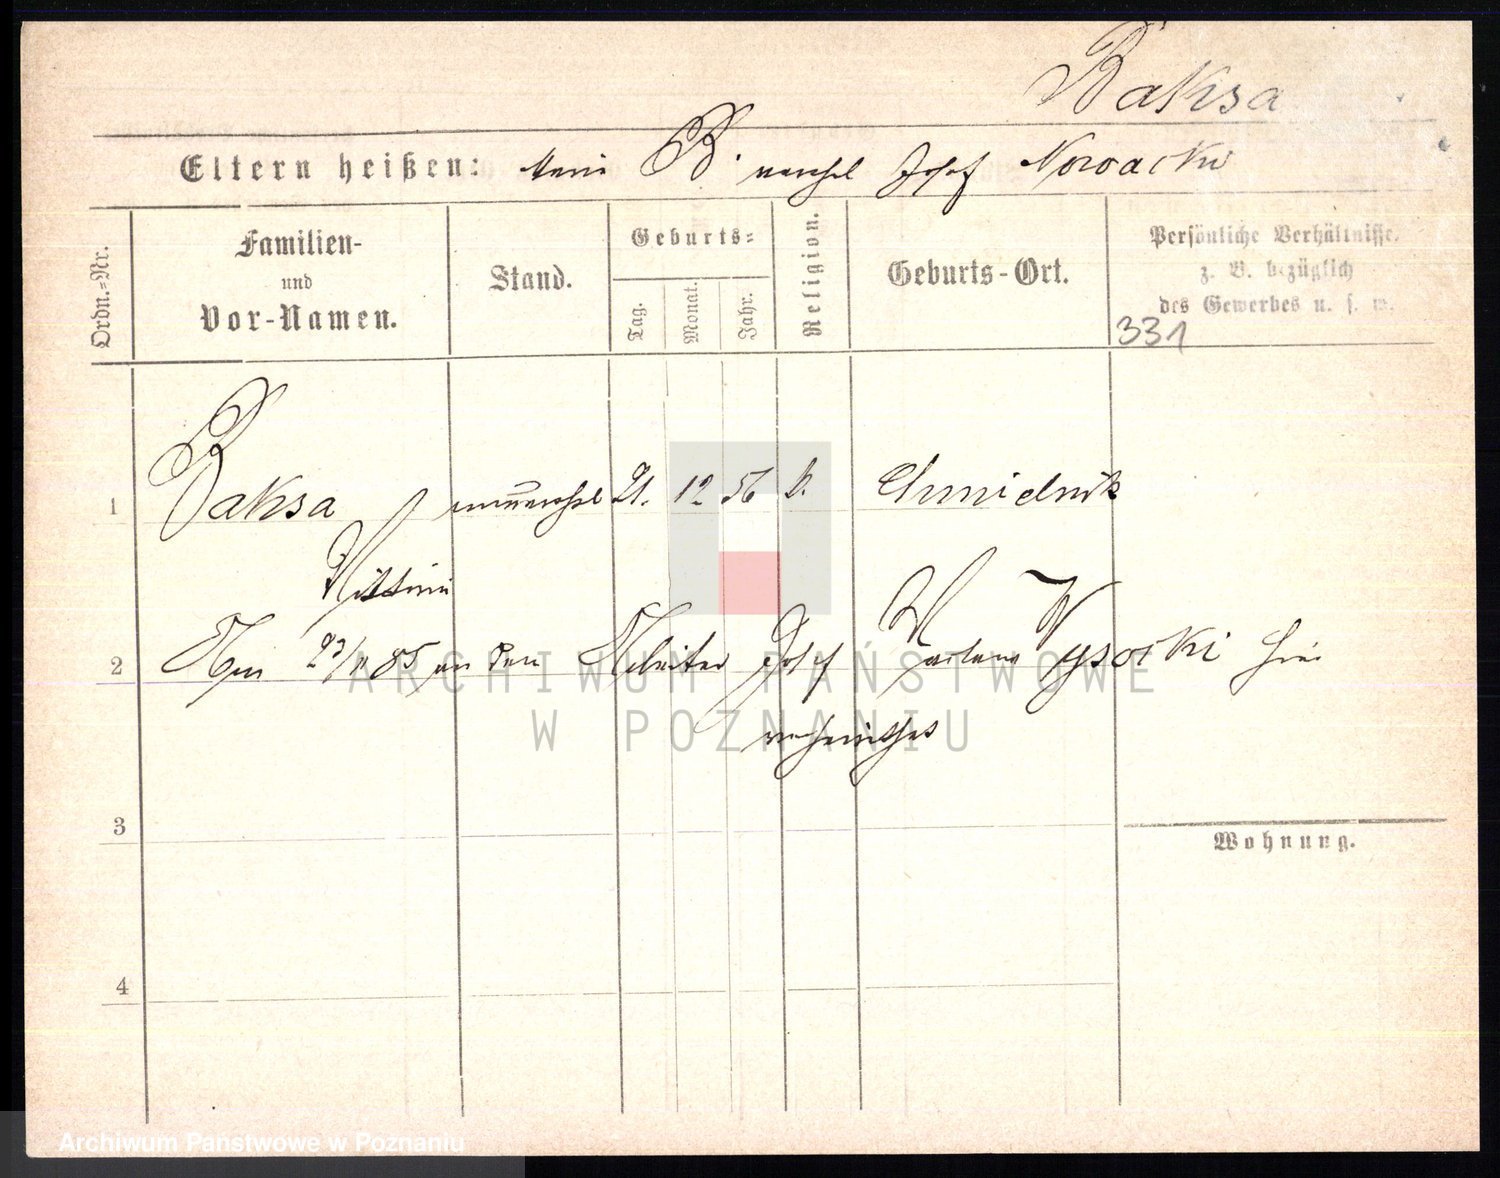 Baksa
Eltern heißen: Marie B. verehel Josef Nowacki
Ordn.-Nr.
Familien-
und
Vor-Namen.
Stand.
Geburts-
Tag.
Monat.
Jahr.
Religion.
Geburts-Ort.
Persönliche Verhältnisse.
z. B. bezüglich
des Gewerbes u. s. w.
331
1 Baksa unverehel 21. 12 56 k. Chmielnik
2 23/11 85 an den Arbeiter Josef Wysocki hier
verheirathet
3
Wohnung.
4
ARCHIWUM PAŃSTWOWE
W POZNANIU
Archiwum Państwowe w Poznaniu